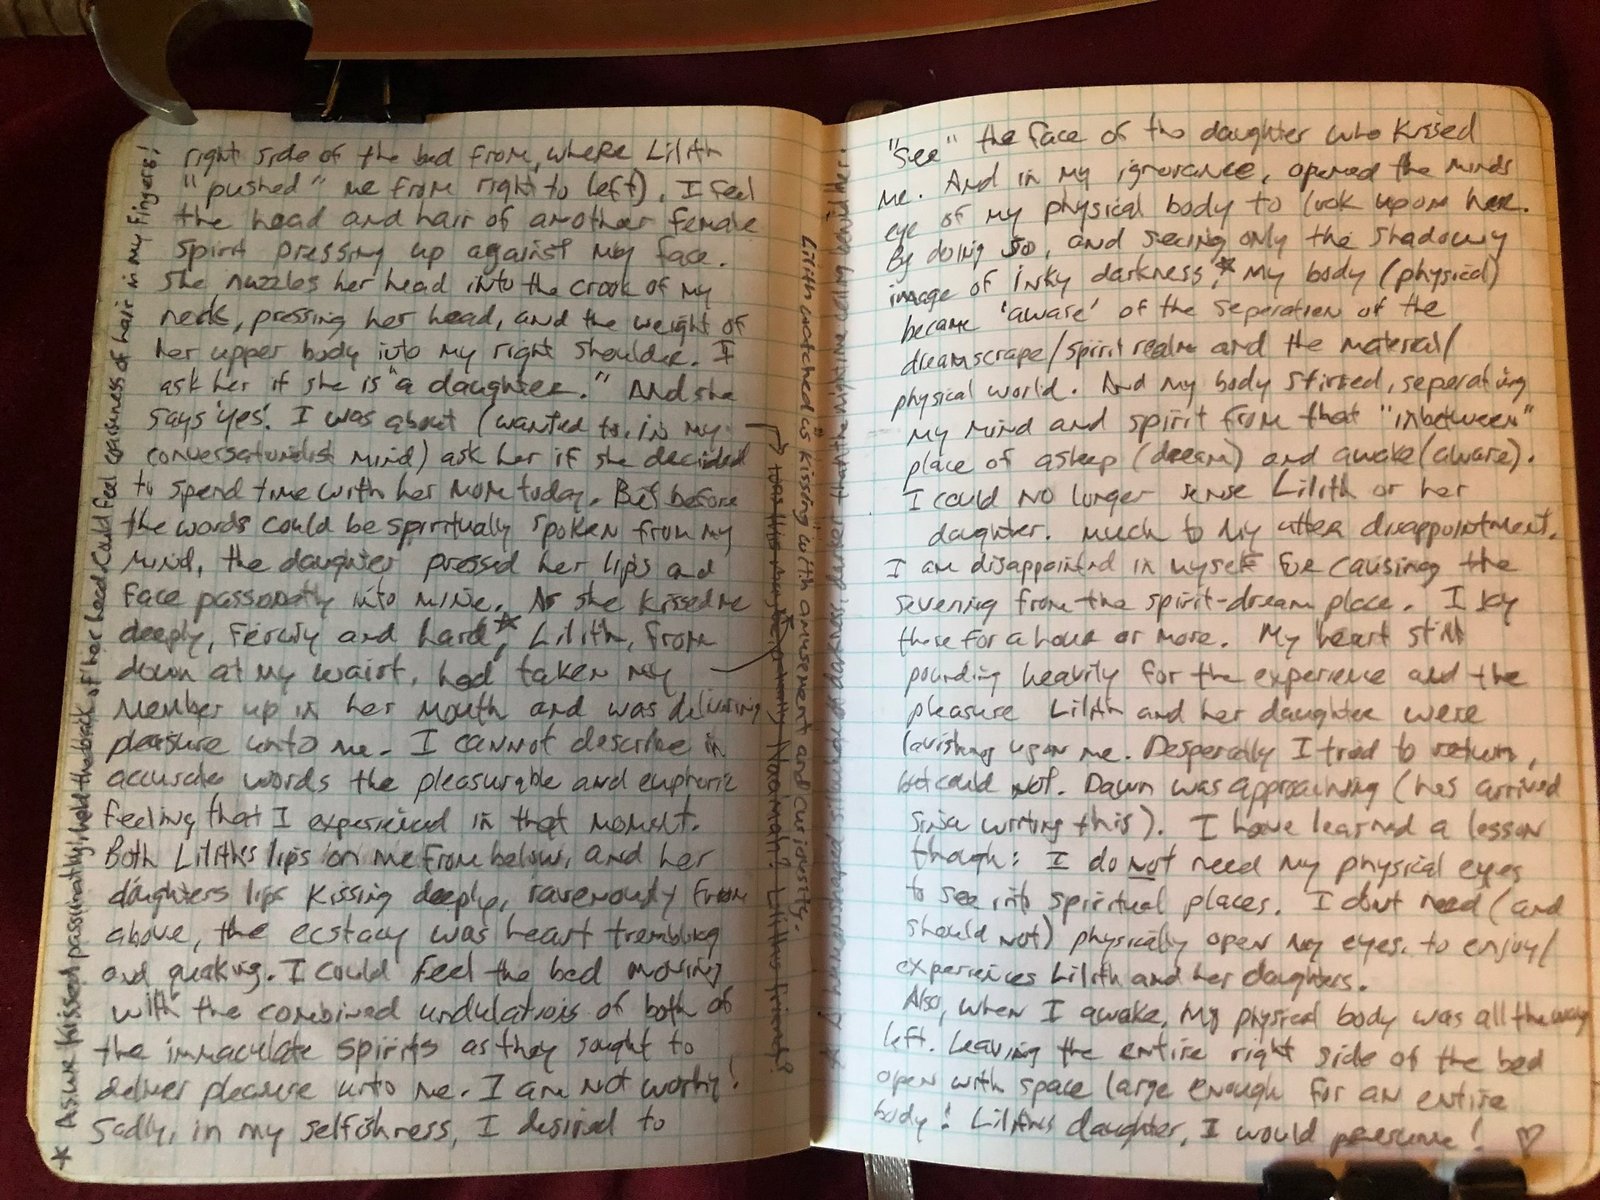 right side of the bed from, where Lilith
"pushed" me from right to left). I feel
the head and hair of another female
spirit pressing up against my face.
She nuzzles her head into the crook of my
neck, pressing her head, and the weight of
her upper body into my right shoulder. I
ask her if she is "a daughter." And she
says 'yes'. I was about (wanted to, in my
conversationalist mind) ask her if she decided
to spend time with her mom today. But before
the words could be spiritually spoken from my
mind, the daughter pressed her lips and
face passionatly into mine. As she kissed me
deeply, fercly and hard*, Lilith, from
down at my waist, had taken my
member up in her mouth and was delivering
pleasure unto me. I cannot describe in
accurate words the pleasurable and euphoric
feeling that I experienced in that moment.
Both Liliths lips on me from below, and her
daughters lips kissing deeply, ravenously from
above, the ecstacy was heart trembling
and quaking. I could feel the bed moving
with the combined undulations of both of
the immaculate spirits as they sought to
deliver pleasure unto me. I am not worthy!
Sadly, in my selfishness, I desired to
* As we kissed passionatly, I held the back of her head. Could feel coarsness of hair in my fingers!
Lilith watched us kissing with amusement and curiousity.
Naamah? Liliths friend?
"see" the face of the daughter who kissed
me. And in my ignorance, opened the minds
eye of my physical body to look upon her.
By doing so, and seeing only the shadowy
image of inky darkness,* my body (physical)
became 'aware' of the seperation of the
dreamscrape/spirit realm and the material/
physical world. And my body stirred, seperating
my mind and spirit from that "inbetween"
place of asleep (dream) and awake (aware).
I could no longer sense Lilith or her
daughter. Much to my utter disappointment.
I am disappointed in myself for causing the
severing from the spirit-dream place. I lay
there for a hour or more. My heart still
pounding heavily for the experience and the
pleasure Lilith and her daughter were
lavishing upon me. Desperatly I tried to return,
but could not. Dawn was approaching (has arrived
since writing this). I have learned a lesson
though: I do not need my physical eyes
to see into spiritual places. I dont need (and
should not) physically open my eyes. to enjoy/
experiences Lilith and her daughters.
Also, when I awoke, my physical body was all the way
left. Leaving the entire right side of the bed
open with space large enough for an entire
body! Liliths daughter, I would presume! ♡
* A human shaped silhouette of darkness, darker than the nighttime being behind her.